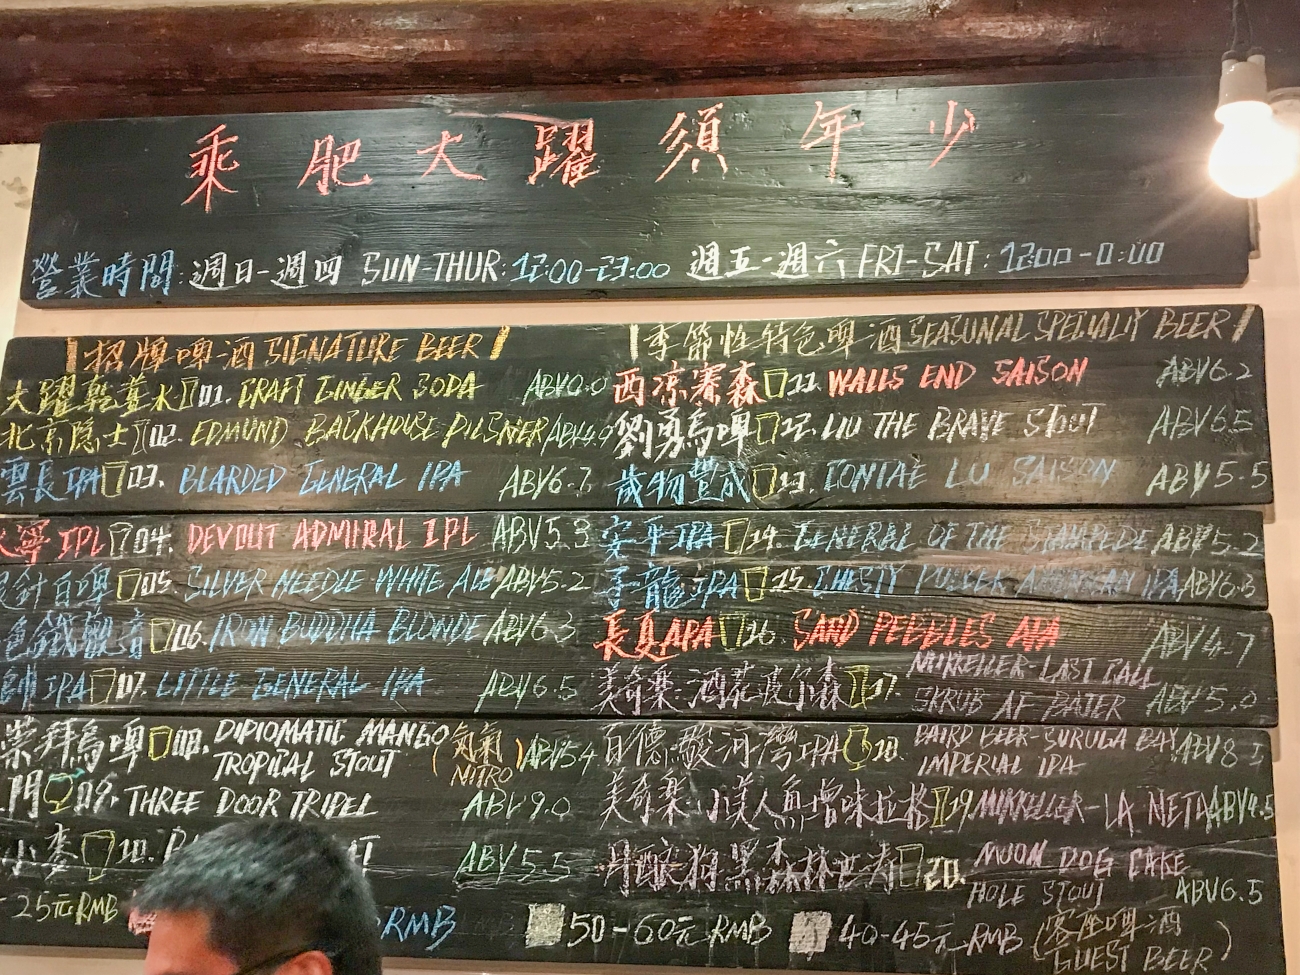 乘肥大躍須年少
營業時間: 週日-週四 SUN-THUR: 12:00-23:00 週五-週六 FRI-SAT: 12:00-0:00
招牌啤酒 SIGNATURE BEER
大躍乾薑水 01. DRAFT GINGER SODA ABV0.0
北京隐士 02. EDMUND BACKHOUSE PILSNER ABV4.9
雲長IPA 03. BEARDED GENERAL IPA ABV6.7
寧IPL 04. DEVOUT ADMIRAL IPL ABV5.3
針白啤 05. SILVER NEEDLE WHITE ALE ABV5.2
色鐵觀音 06. IRON BUDDHA BLONDE ABV6.3
帥IPA 07. LITTLE GENERAL IPA ABV6.5
崇拜烏啤 08. DIPLOMATIC MANGO
TROPICAL STOUT (氮氣 NITRO) ABV5.4
門 09. THREE DOOR TRIPEL ABV9.0
小麥 10. ABV5.5
25元RMB RMB
季節性特色啤酒 SEASONAL SPECIALTY BEER
西凉賽森 11. WALLS END SAISON ABV6.2
劉勇烏啤 12. LIU THE BRAVE STOUT ABV6.5
歲物豐成 13. LU SAISON ABV5.5
安平IPA 14. GENERAL OF THE STAMPEDE ABV5.2
子龍IPA 15. CHESTY PULLER AMERICAN IPA ABV6.3
長夏APA 16. SAND PEBBLES APA ABV4.7
美奇樂: 17. MIKKELLER-LAST CALL
SKRUB AF BAJER ABV5.0
百德-駿河灣IPA 18. BAIRD BEER-SURUGA BAY
IMPERIAL IPA
美奇樂-小美人魚增味拉格 19. MIKKELLER-LA NETA ABV4.5
月酿狗黑森林世涛 20. MOON DOG CAKE
HOLE STOUT ABV6.5
50-60元RMB 40-45元RMB (客座啤酒
GUEST BEER)